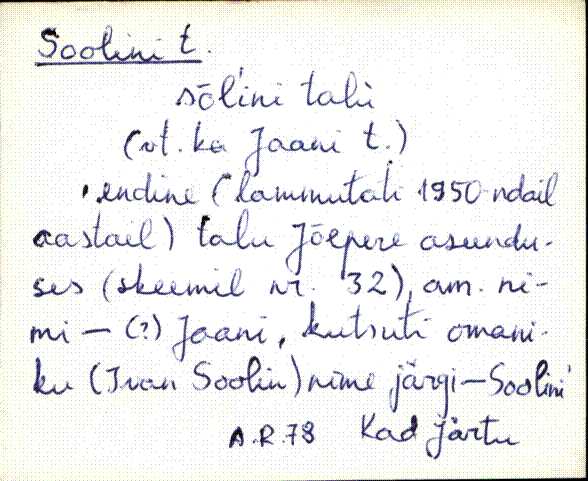 Soolini t.
sōĺini talu
(vt. ka Jaani t.)
endine (lammutati 1950-ndail
aastail) talu Jõepere asundu-
ses (skeemil nr. 32), am. ni-
mi – (?) Jaani, kutsuti omani-
ku (Ivan Soolin) nime järgi – Soolini
A.R.78 Kad Järtu